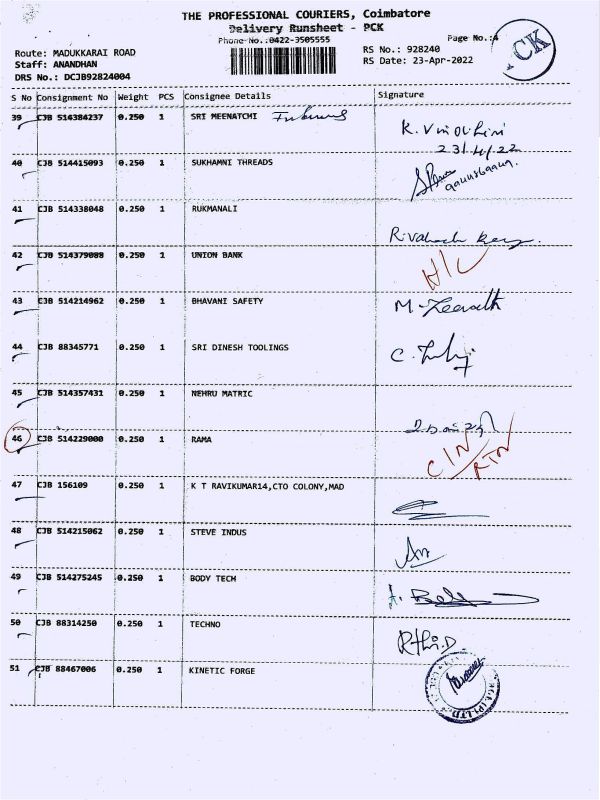 THE PROFESSIONAL COURIERS, Coimbatore
Delivery Runsheet - PCK
Phone No.:0422-3505555
Page No.:4
CK
Route: MADUKKARAI ROAD
RS No.: 928240
Staff: ANANDHAN
RS Date: 23-Apr-2022
DRS No.: DCJB92824004
S No Consignment No Weight PCS Consignee Details Signature
39 CJB 514384237 0.250 1 SRI MEENATCHI
23/4/22
40 CJB 514415093 0.250 1 SUKHAMNI THREADS
41 CJB 514338048 0.250 1 RUKMANALI
42 CJB 514379088 0.250 1 UNION BANK
43 CJB 514214962 0.250 1 BHAVANI SAFETY
44 CJB 88345771 0.250 1 SRI DINESH TOOLINGS
45 CJB 514357431 0.250 1 NEHRU MATRIC
46 CJB 514229000 0.250 1 RAMA
C/N
RTN
47 CJB 156109 0.250 1 K T RAVIKUMAR14,CTO COLONY,MAD
48 CJB 514215062 0.250 1 STEVE INDUS
49 CJB 514275245 0.250 1 BODY TECH
50 CJB 88314250 0.250 1 TECHNO
51 CJB 88467006 0.250 1 KINETIC FORGE